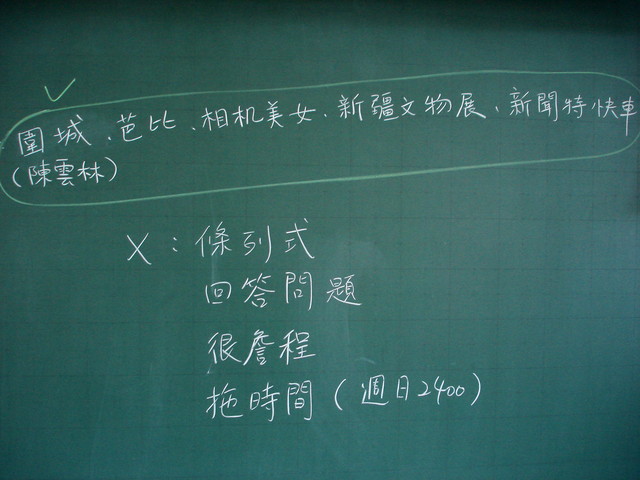 圍城、芭比、相机美女、新疆文物展、新聞特快車
(陳雲林)
X：條列式
回答問題
很詹程
拖時間(週日2400)